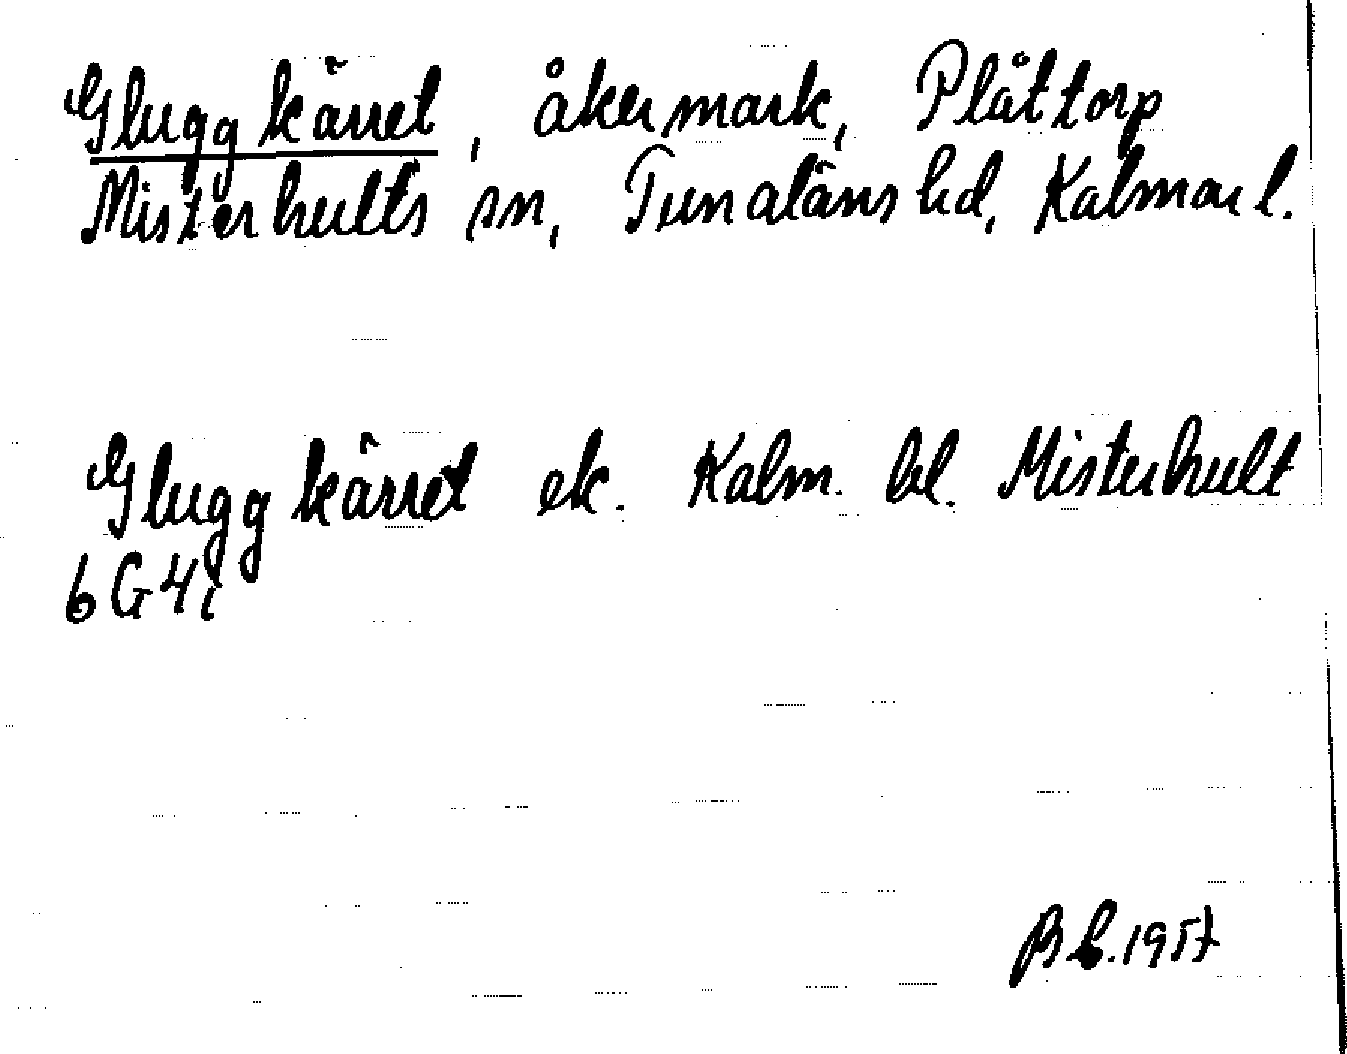 Gluggkärret, åkermark, Plåttorp
Misterhults sn, Tunaläns hd, Kalmar l.
Gluggkärret ek. Kalm. bl. Misterhult
6G4i
1957